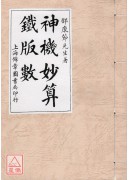 邵康節先生著
神機妙算
鐵版數
上海錦章圖書局印行